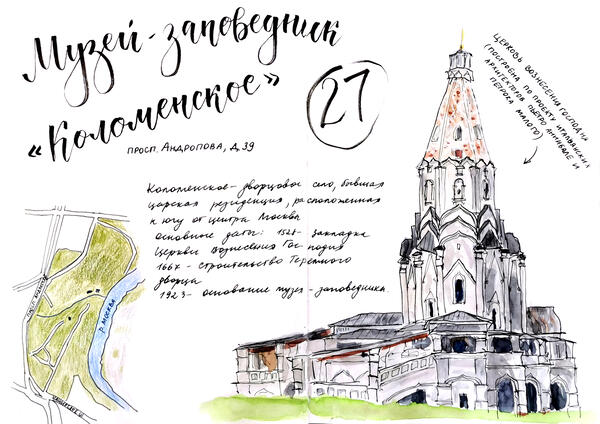 Музей-заповедник
«Коломенское»
просп. Андропова, д. 39
27
Церковь Вознесения Господня
(построена по проекту итальянских
архитекторов Пьетро Аннибале и
Петрока Малого)
Коломенское - дворцовое село, бывшая
царская резиденция, расположенная
к югу от центра Москвы.
Основные даты: 1528 - закладка
Церкви Вознесения Гос подня
1667 - строительство Теремного
дворца
1923 - основание музея-заповедника.
р. Москва